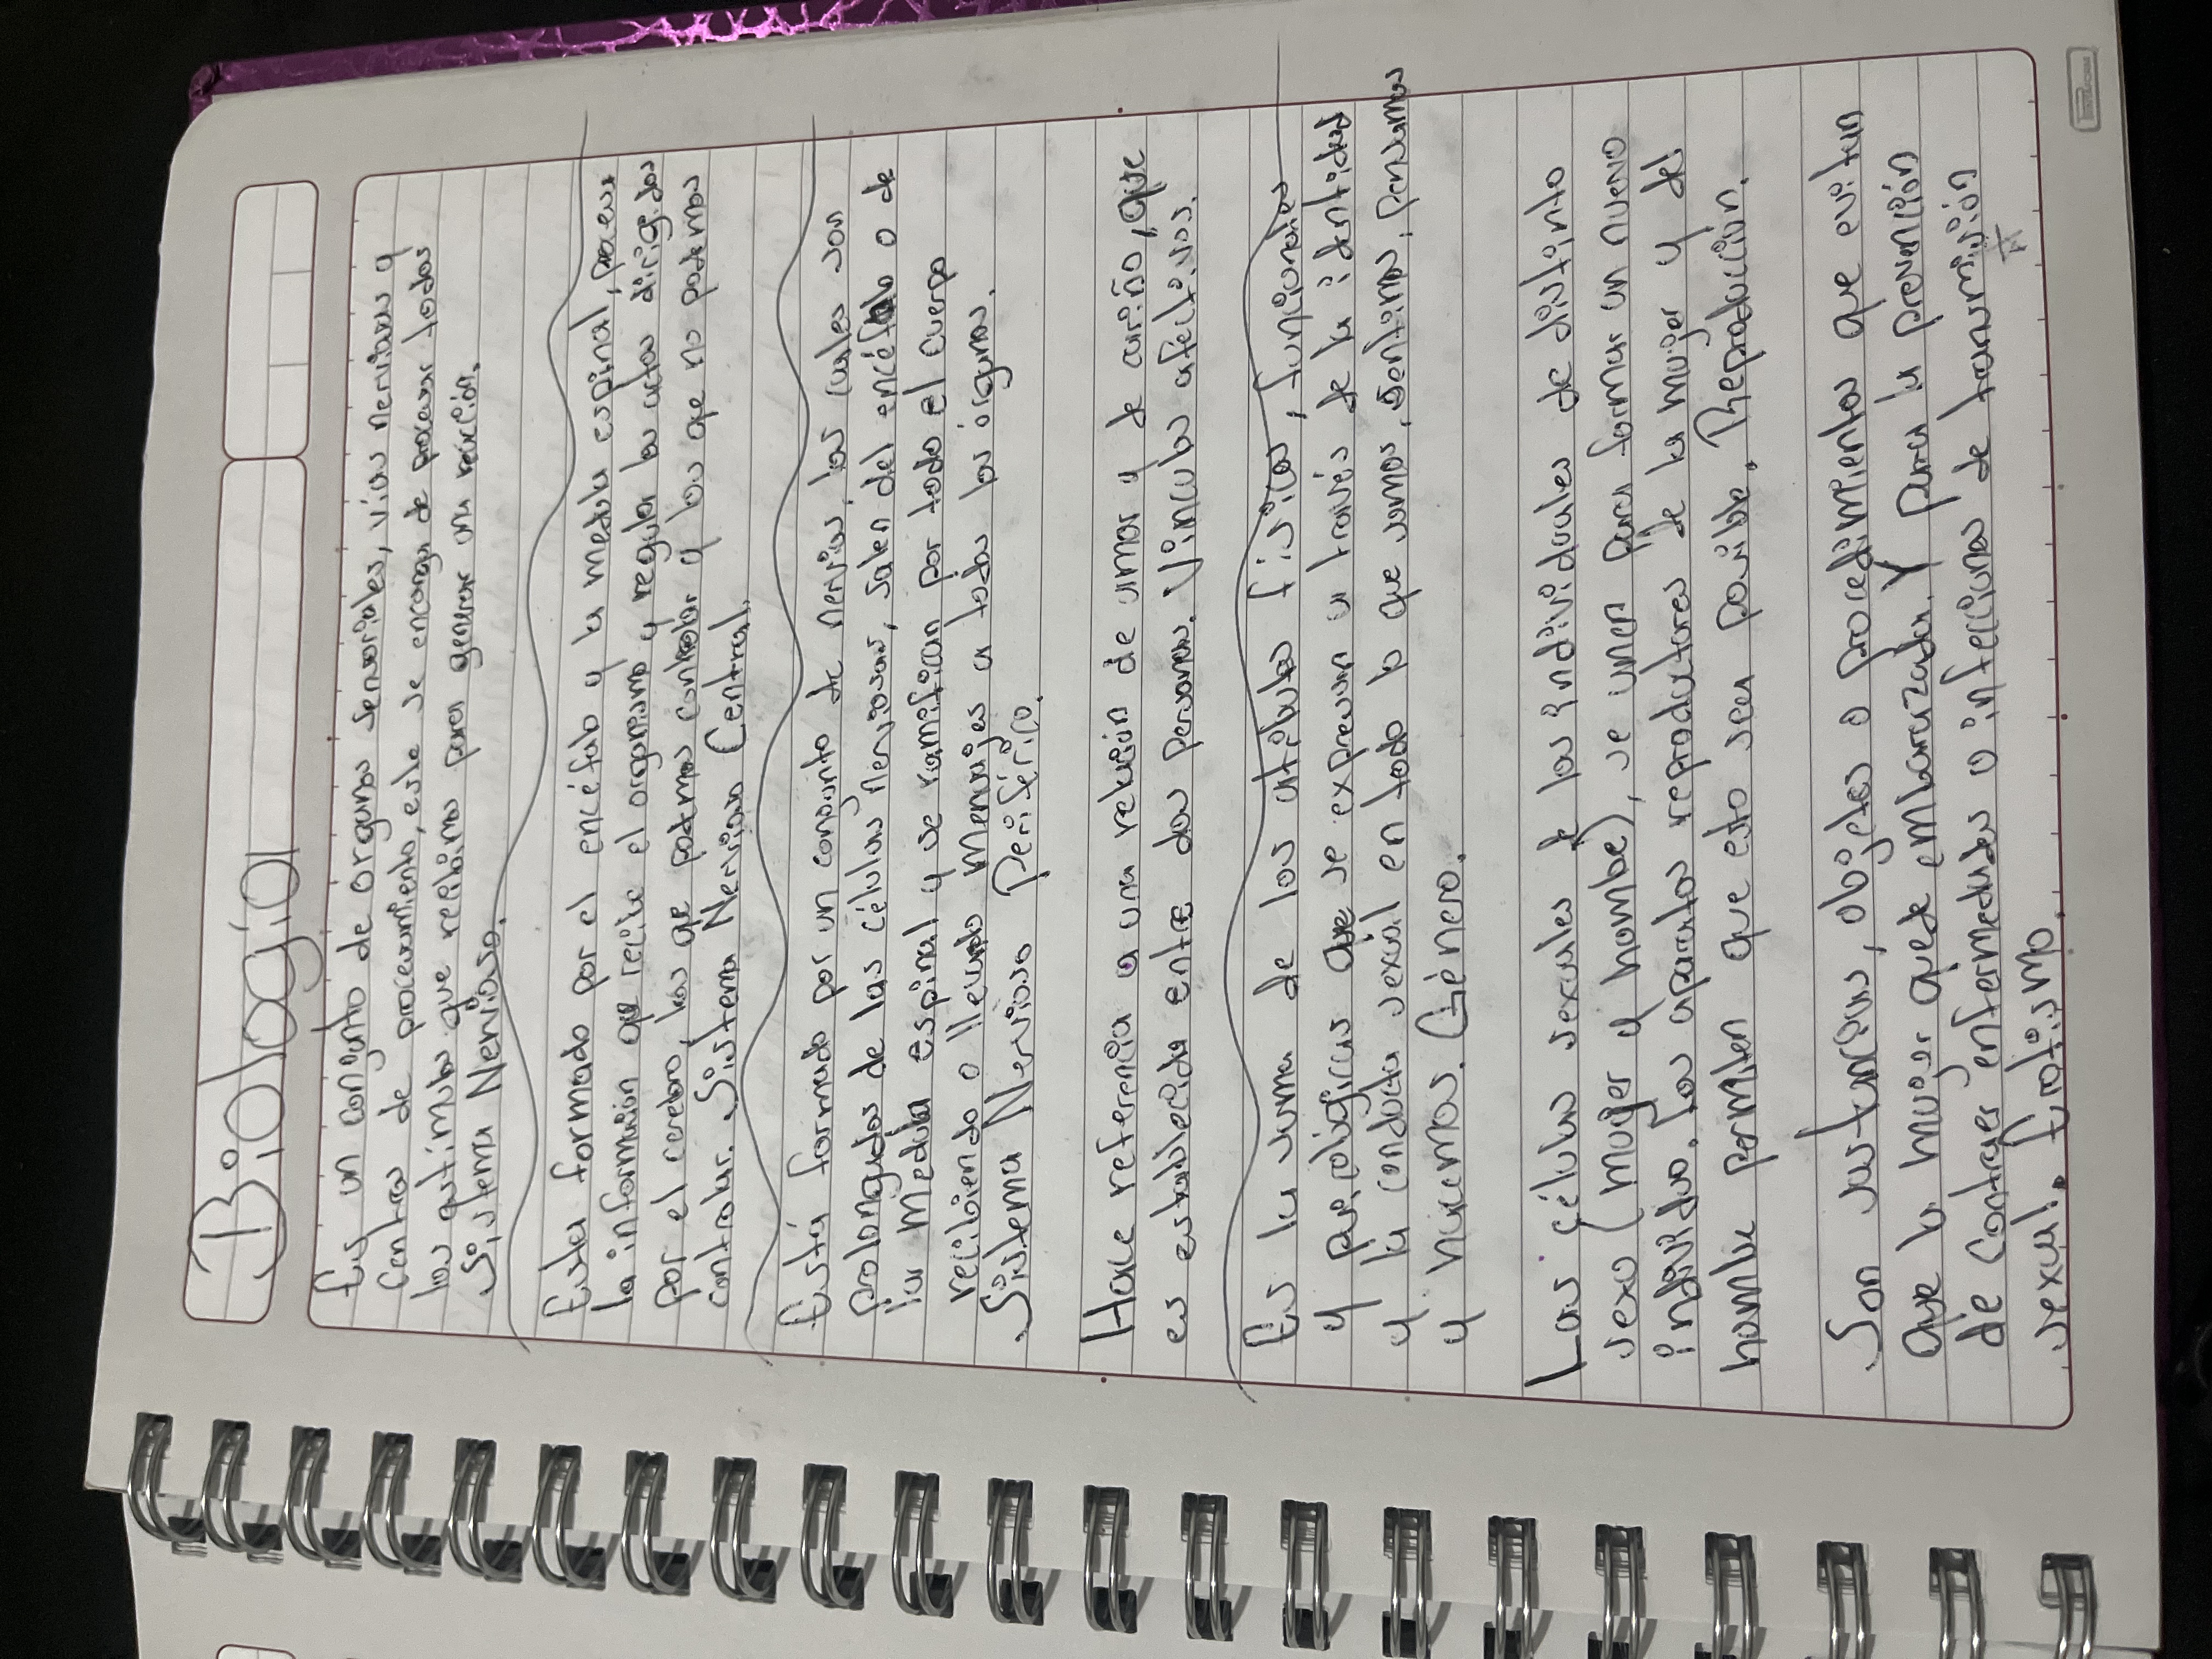 Biología
Es un conjunto de organos sensoriales, vías nerviosas y
centros de procesamiento, este se encarga de procesar todos
los estímulos que recibimos para generar una reacción.
Sistema Nervioso.
Esta formado por el encéfalo y la medula espinal, procesa
la información que recibe el organismo y regula los actos dirigidos
por el cerebro, los que podemos controlar y los que no podemos
controlar. Sistema Nervioso Central.
Está formado por un conjunto de nervios, los cuales son
prolongados de las células nerviosas, salen del encéfalo o de
la medula espinal y se ramifican por todo el cuerpo
recibiendo o llevando mensajes a todos los órganos.
Sistema Nervioso Periférico.
Hace referencia a una relación de amor y de cariño, que
es establecida entre dos personas. Vinculos afectivos.
Es la suma de los atributos físicos, funcionales
y psicológicas que se expresan a través de la identidad
y la conducta sexual en todo lo que somos, sentimos, pensamos
y hacemos. Género.
Las células sexuales de los individuales de distinto
sexo (mujer y hombre), se unen para formar un nuevo
individuo, los aparatos reproductores de la mujer y del
hombre permiten que esto sea posible. Reproducción.
Son sustancias, objetos o procedimientos que evitan
que la mujer quede embarazada. Y para la prevención
de contraer enfermedades o infecciones de transmisión
sexual. Erotismo.